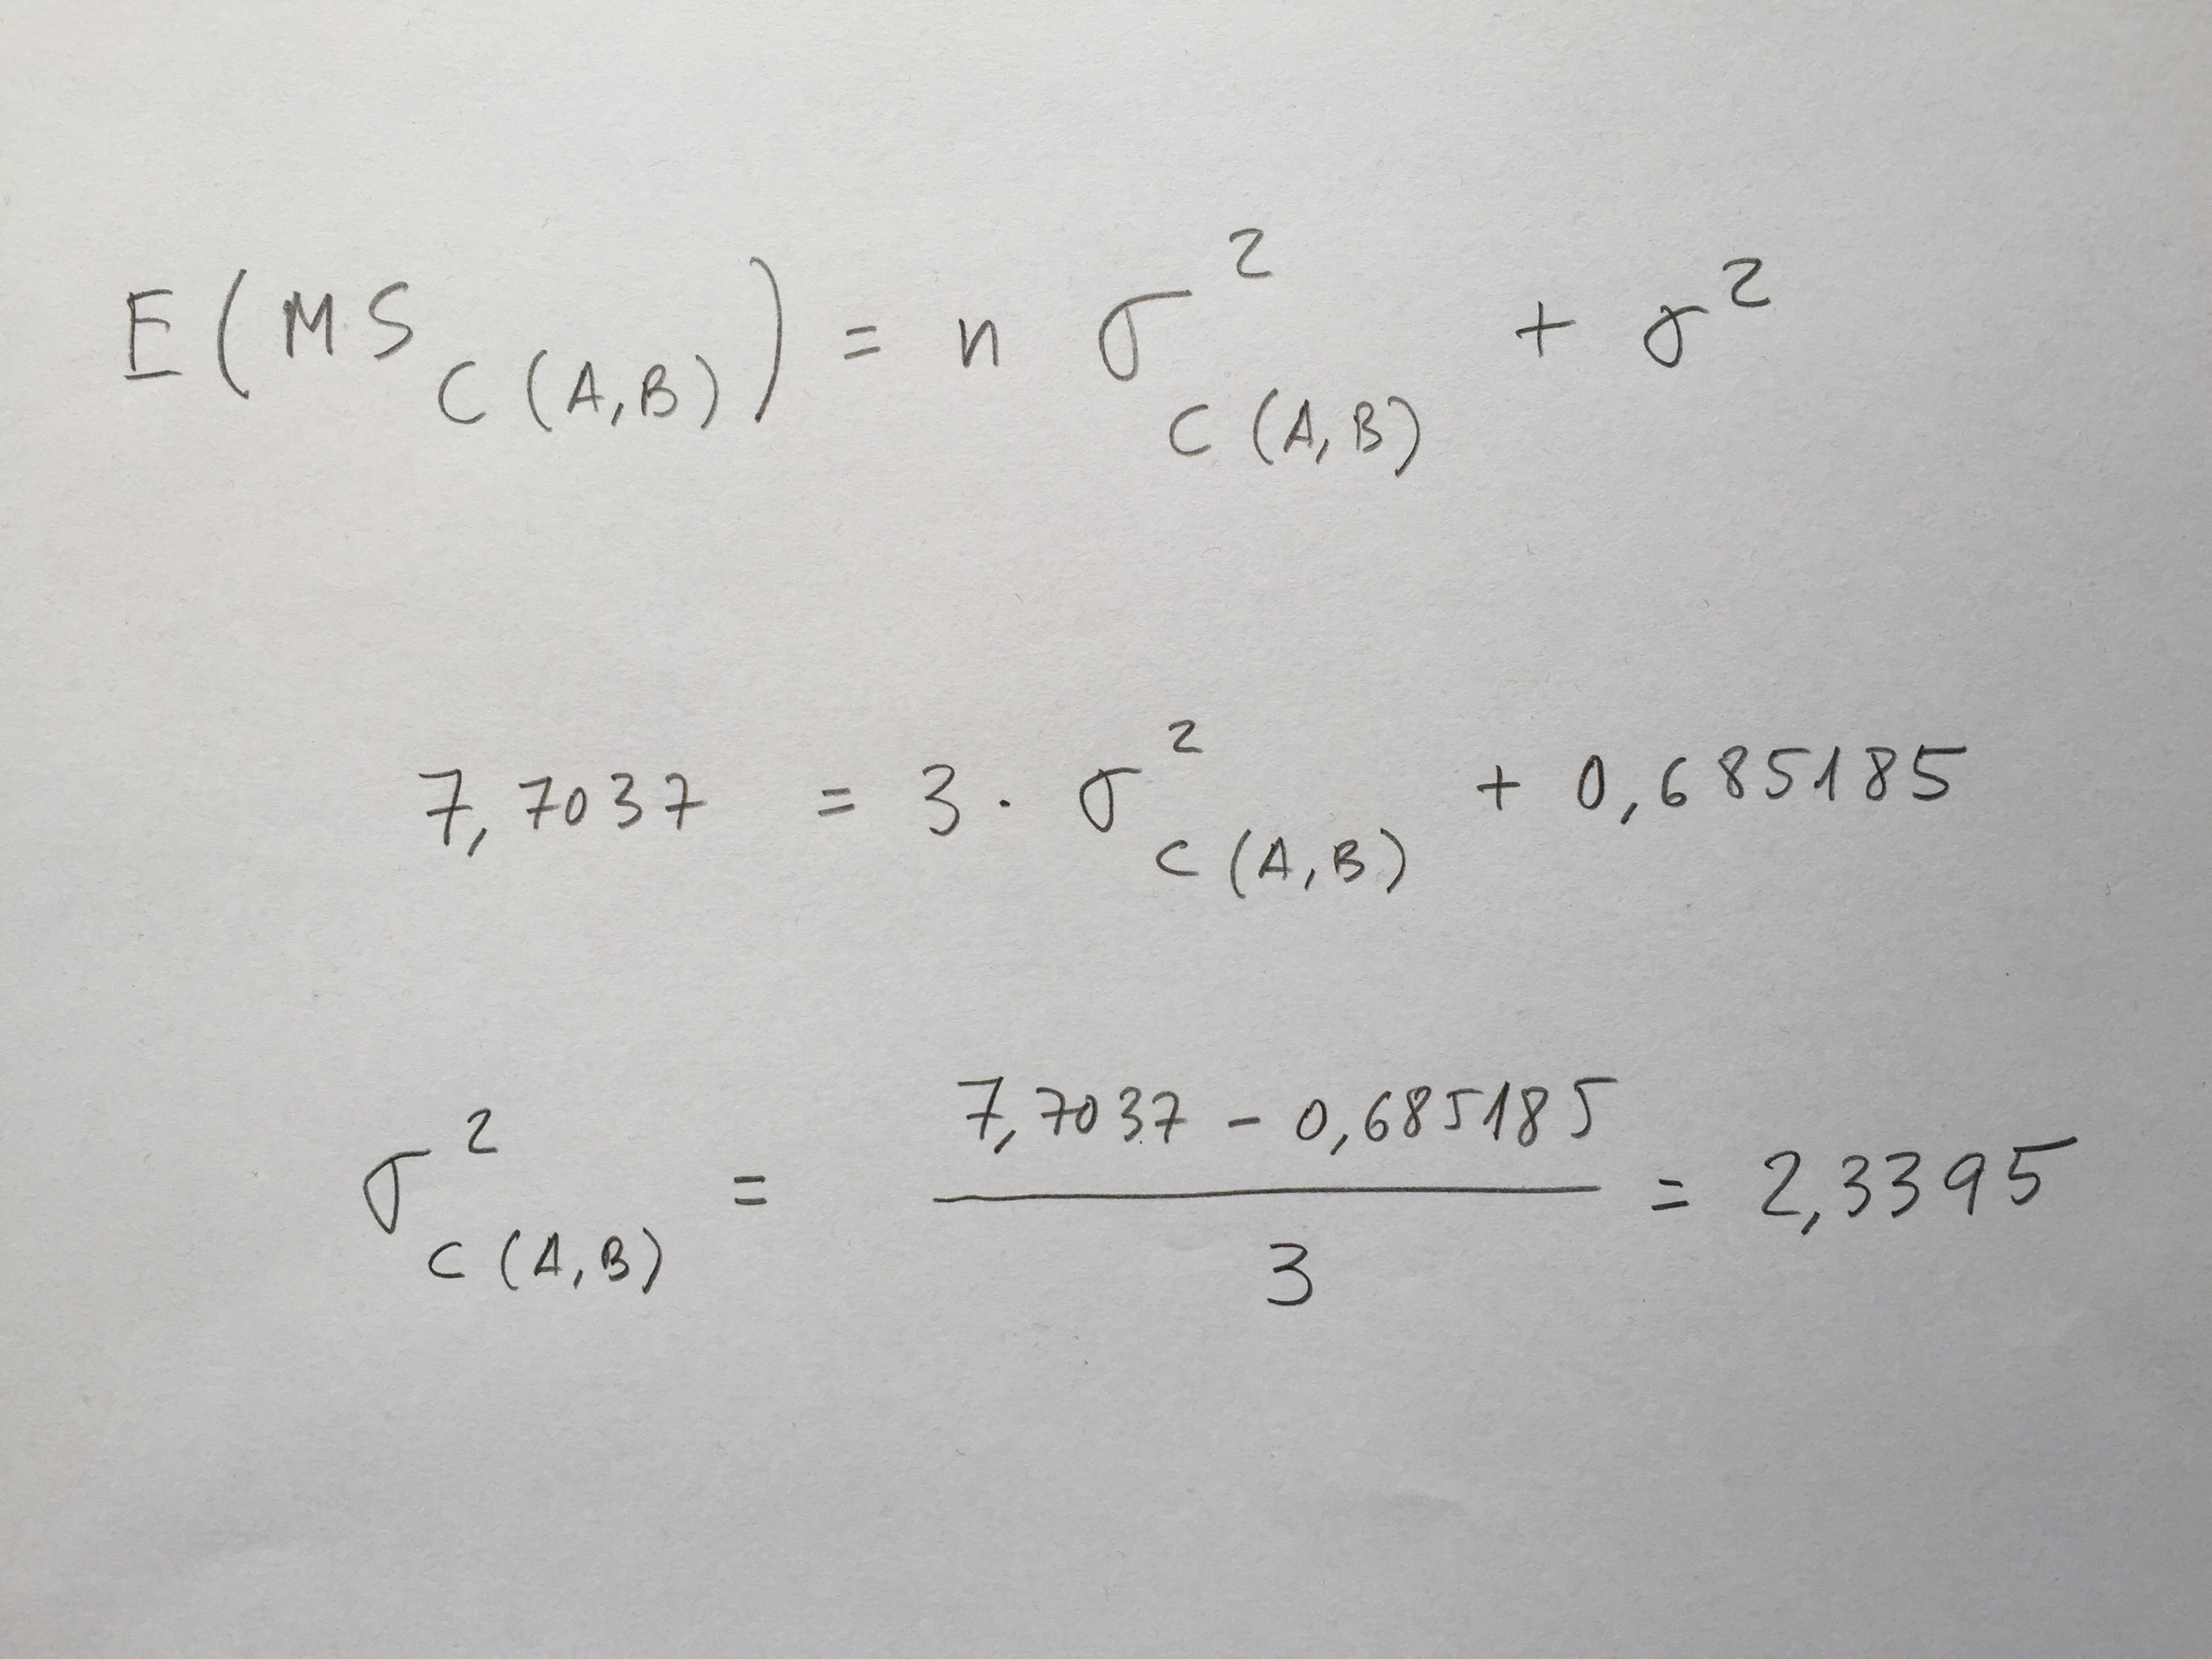 E(MS_{C(A,B)}) = n σ²_{C(A,B)} + σ²
7,7037 = 3 · σ²_{C(A,B)} + 0,685185
σ²_{C(A,B)} = \frac{7,7037 - 0,685185}{3} = 2,3395